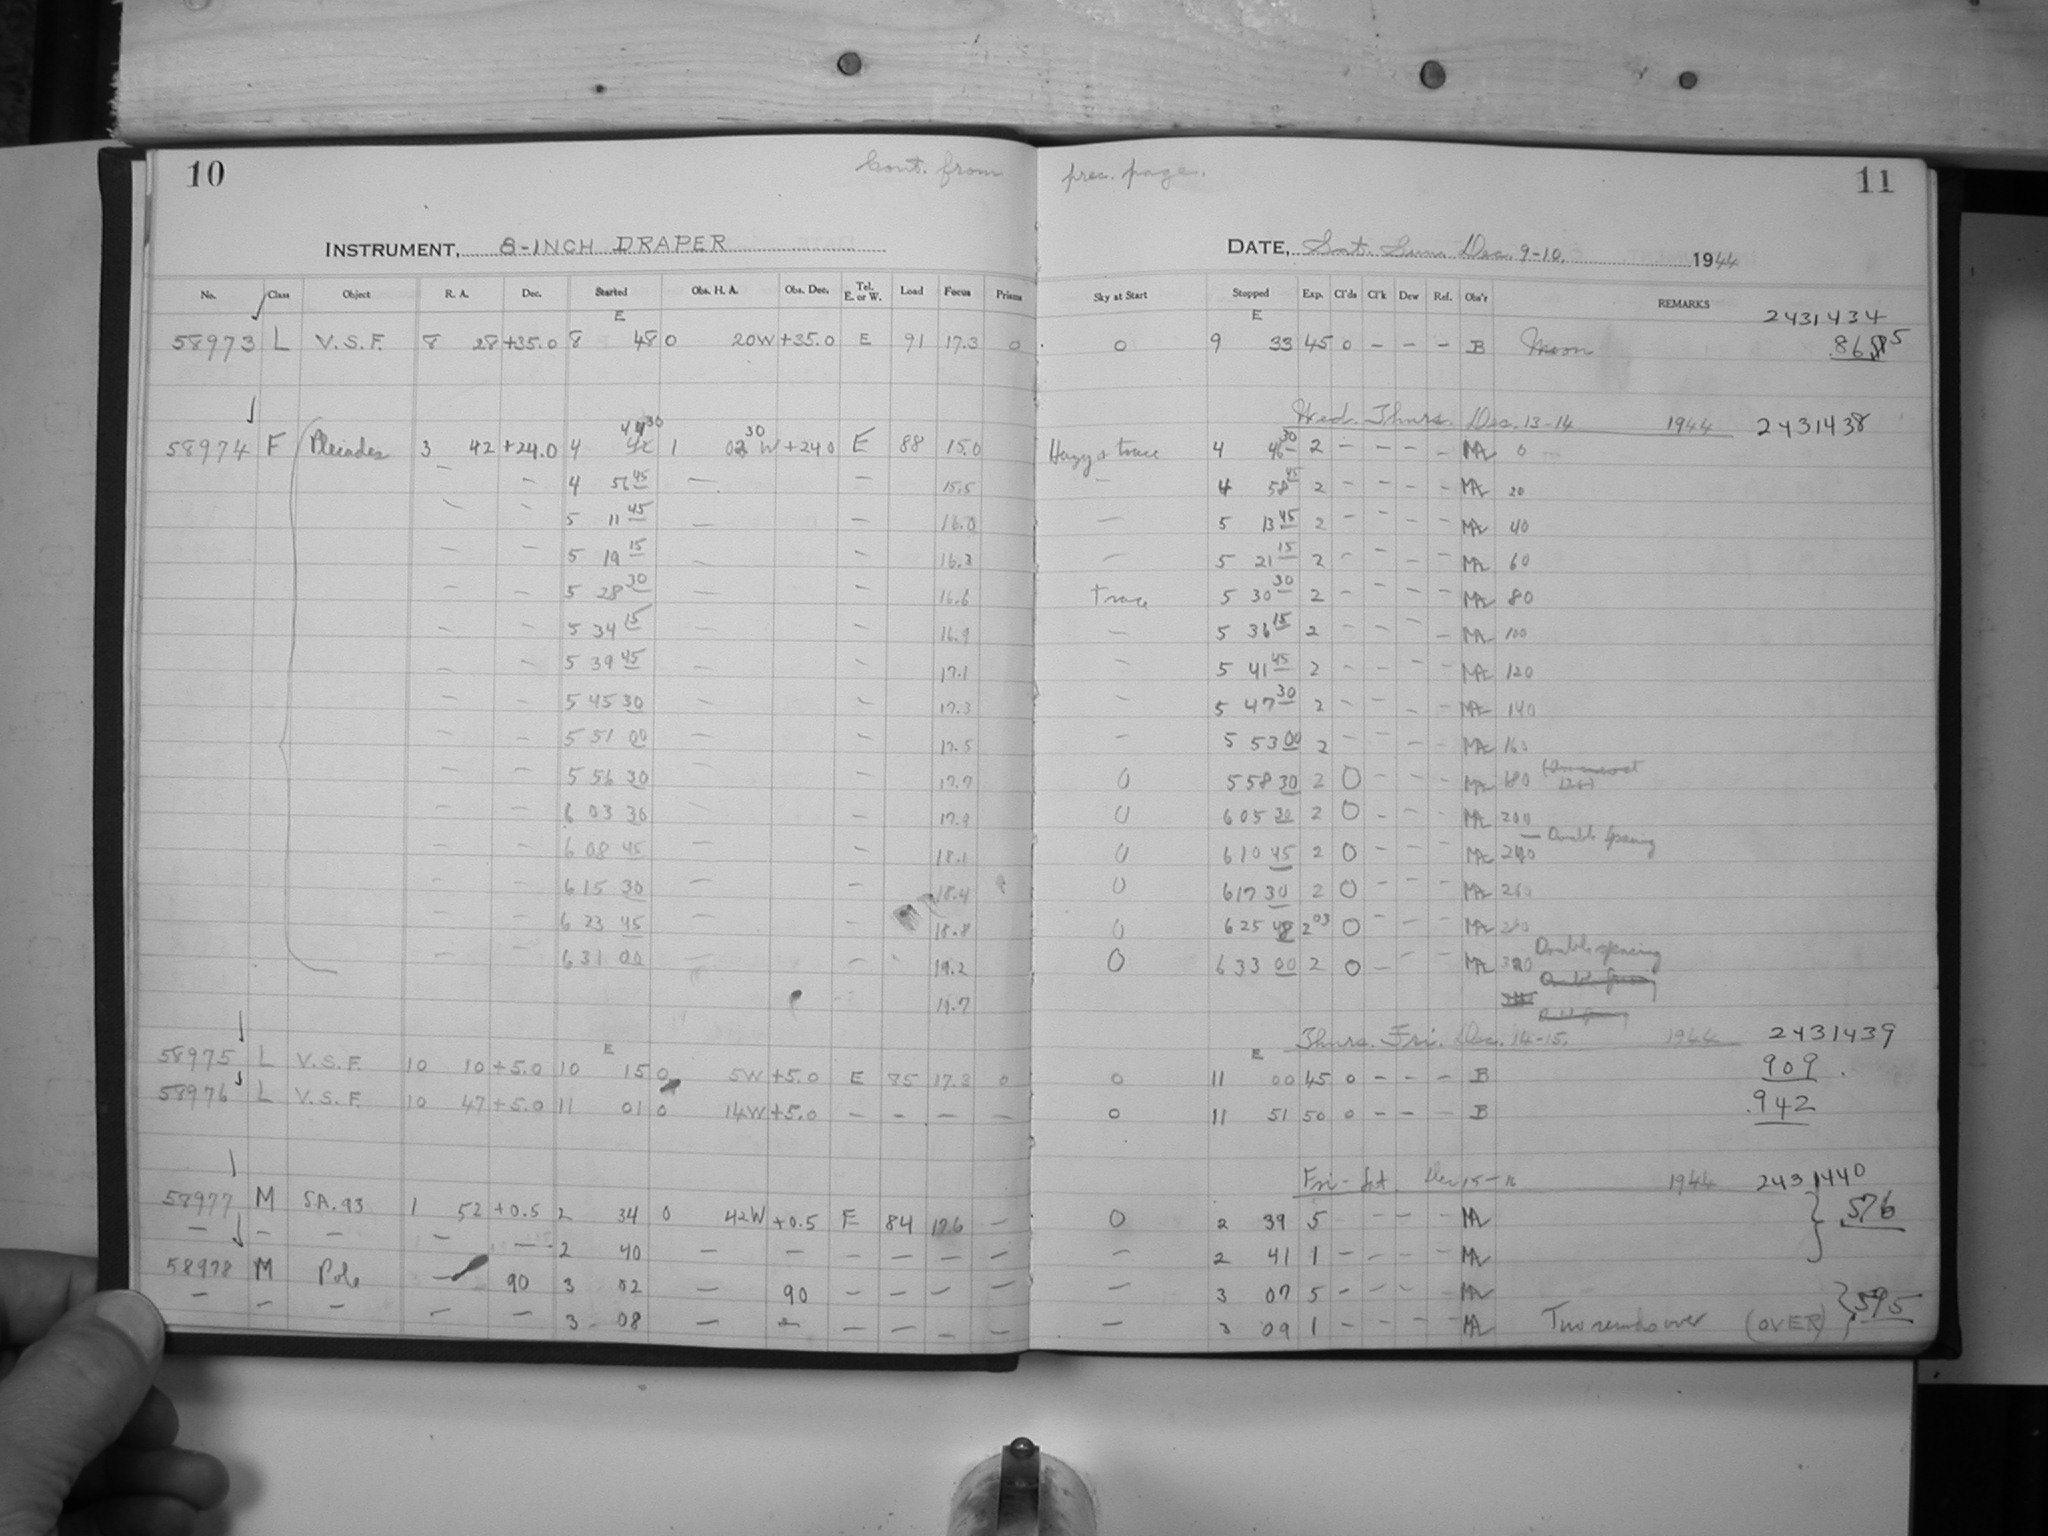 10 Cont. from prec. page. 11
INSTRUMENT, 8-INCH DRAPER DATE, Sat. Sun. Dec. 9-10, 1944
No. Class Object R. A. Dec. Started Obs. H. A. Obs. Dec. Tel. E. or W. Load Focus Prisms Sky at Start Stopped Exp. Cl'ds Cl'k Dew Ref. Obs'r REMARKS
E E 2431434
58973 L V.S.F. 8 28 +35.0 8 48 0 20W +35.0 E 91 17.3 0 0 9 33 45 0 - - - B Moon
Wed. Thurs. Dec. 13-14 1944 2431438
58974 F Pleiades 3 42 +24.0 4 44 30 1 02 30 W +24.0 E 88 15.0 Hazy & trace 4 46 30 2 - - - - MA 0
- - 4 56 45 - - 15.5 - 4 58 45 2 - - - - MA 20
- - 5 11 45 - - 16.0 - 5 13 45 2 - - - - MA 40
- - 5 19 15 - - 16.3 - 5 21 15 2 - - - - MA 60
- - 5 28 30 - - 16.6 Trace 5 30 30 2 - - - - MA 80
- - 5 34 15 - - 16.9 - 5 36 15 2 - - - - MA 100
- - 5 39 45 - - 17.1 - 5 41 45 2 - - - - MA 120
- - 5 45 30 - - 17.3 - 5 47 30 2 - - - - MA 140
- - 5 51 00 - - 17.5 - 5 53 00 2 - - - - MA 160
- - 5 56 30 - - 17.7 0 5 58 30 2 0 - - - MA 180
- - 6 03 30 - - 17.9 0 6 05 30 2 0 - - - MA 200
- Double spacing
- - 6 08 45 - - 18.1 0 6 10 45 2 0 - - - MA 240
- - 6 15 30 - - 18.4 0 6 17 30 2 0 - - - MA 260
- - 6 23 45 - - 18.8 0 6 25 48 2 03 0 - - - MA 280
Double spacing
- - 6 31 00 - - 19.2 0 6 33 00 2 0 - - - MA 320
19.7
Thurs. Fri. Dec. 14-15. 1944 2431439
E E
58975 L V.S.F. 10 10 +5.0 10 15 0 5W +5.0 E 85 17.3 0 0 11 00 45 0 - - - B 909
58976 L V.S.F. 10 47 +5.0 11 01 0 14W +5.0 - - - - 0 11 51 50 0 - - - B .942
Fri - Sat Dec 15-16 1944 2431440
58977 M SA.93 1 52 +0.5 2 34 0 42W +0.5 E 84 17.6 - 0 2 39 5 - - - MA 576
- - - - - 2 40 - - - - - - - 2 41 1 - - - - MA
58978 M Pole - 90 3 02 - 90 - - - - - 3 07 5 - - - - MA
- - - - - 3 08 - - - - - - - 3 09 1 - - - - MA Two records over (OVER) .595